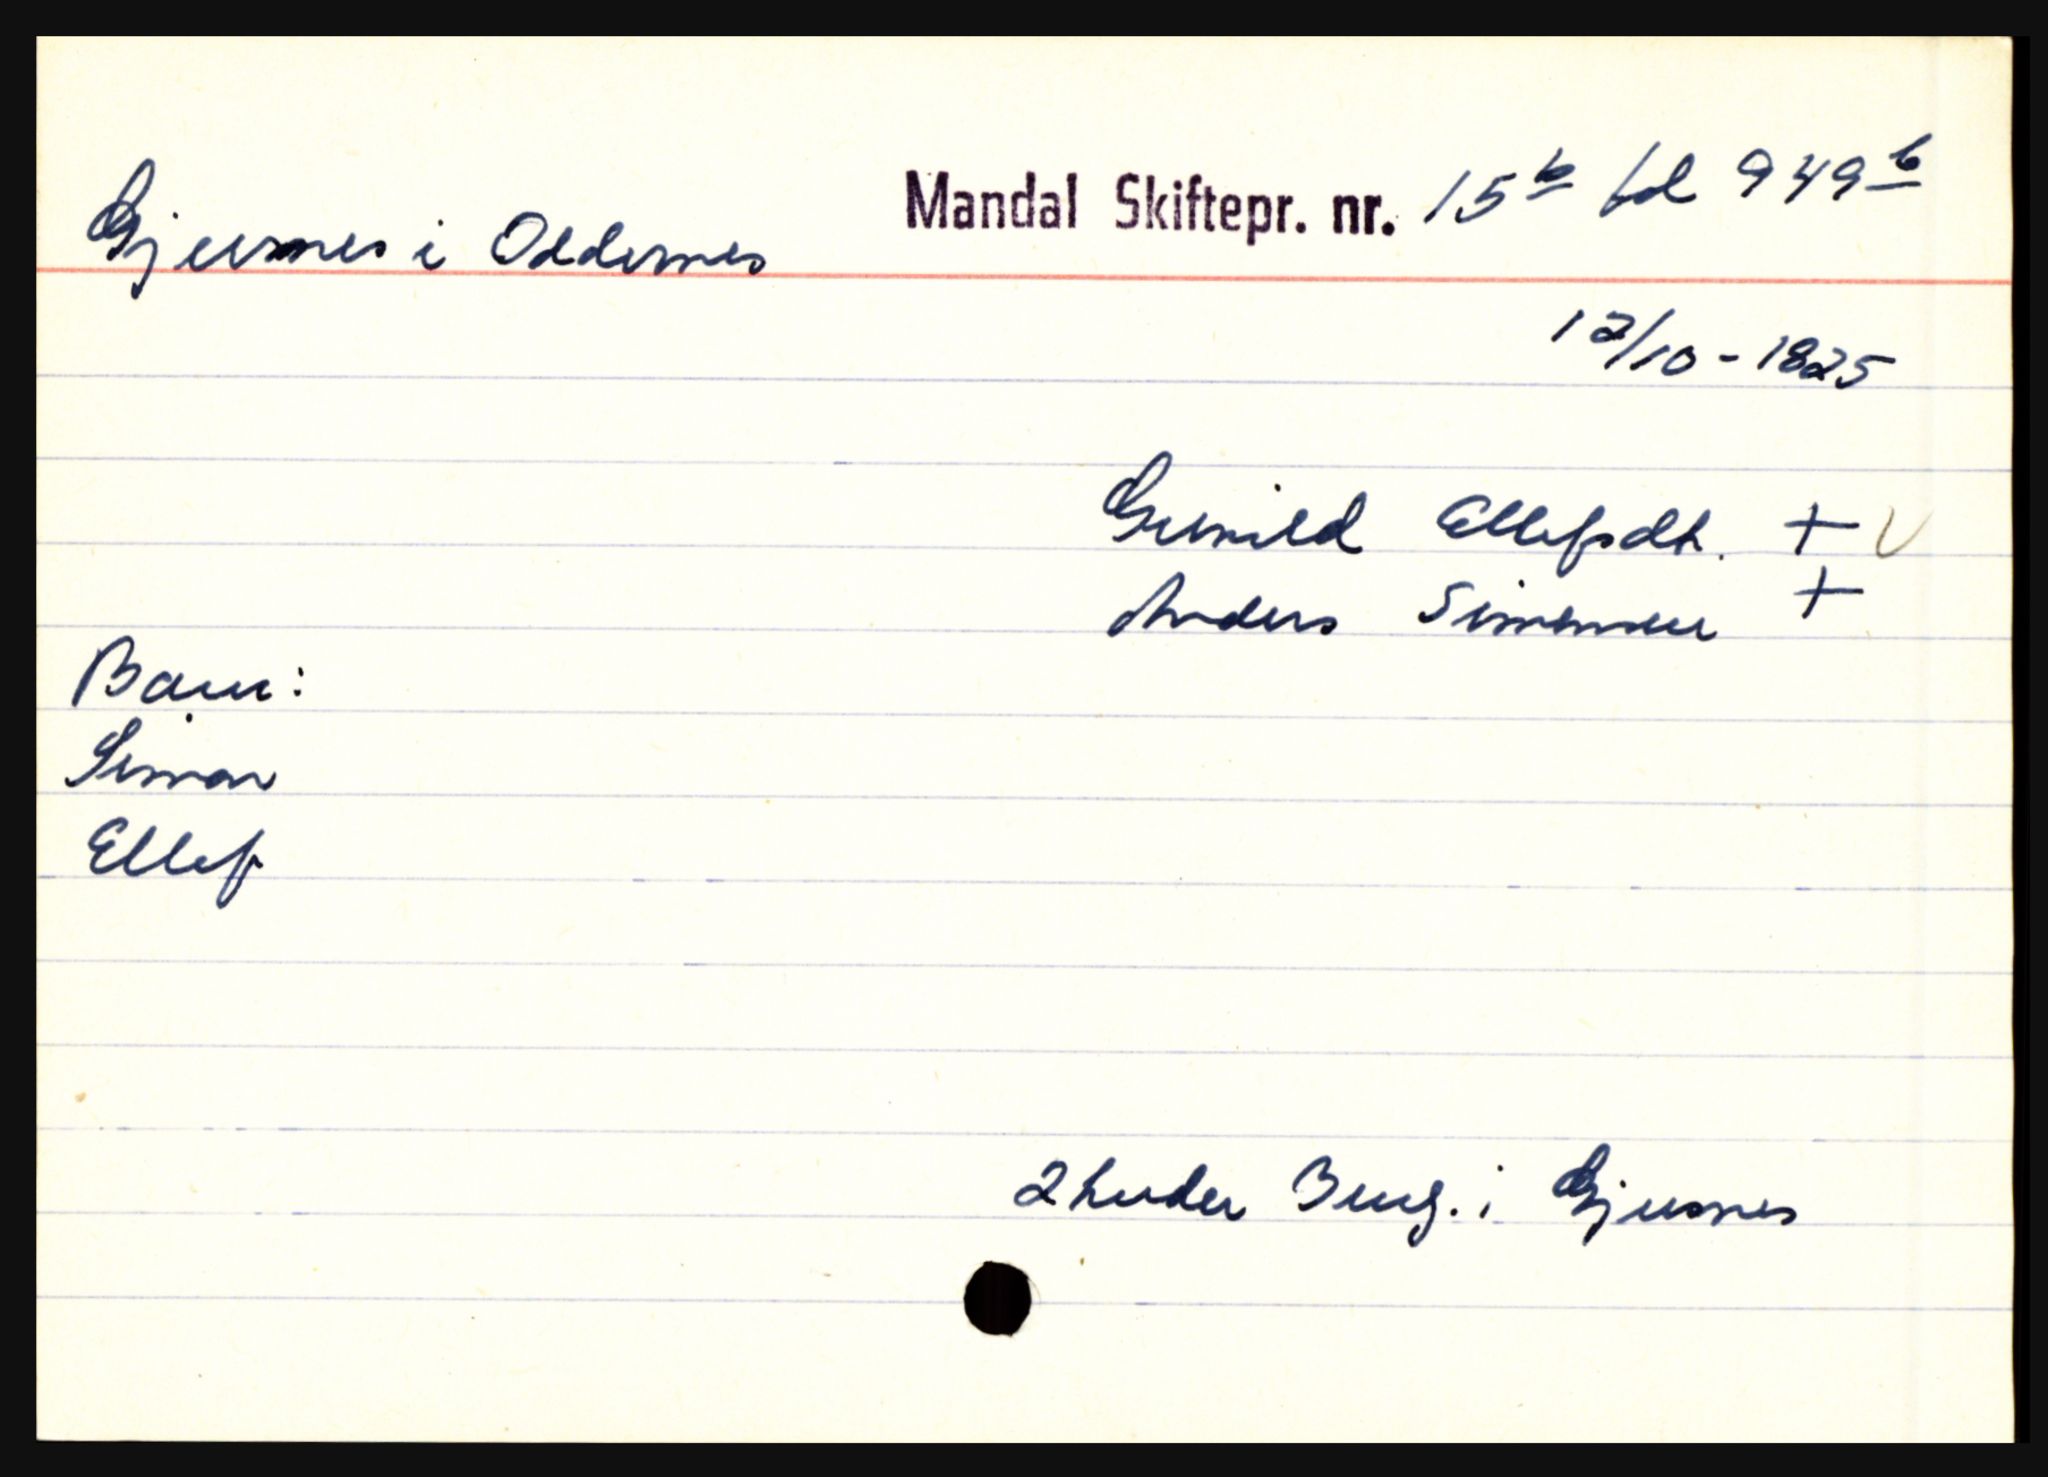 Mandal Skiftepr. nr. 15b fol 949b
Gjusnes i Oddernes
12/10-1825
Gunild Ellefsdt. + V
Anders Simensen +
Barn:
Simon
Ellef
2 huder Brug. i Gjusnes